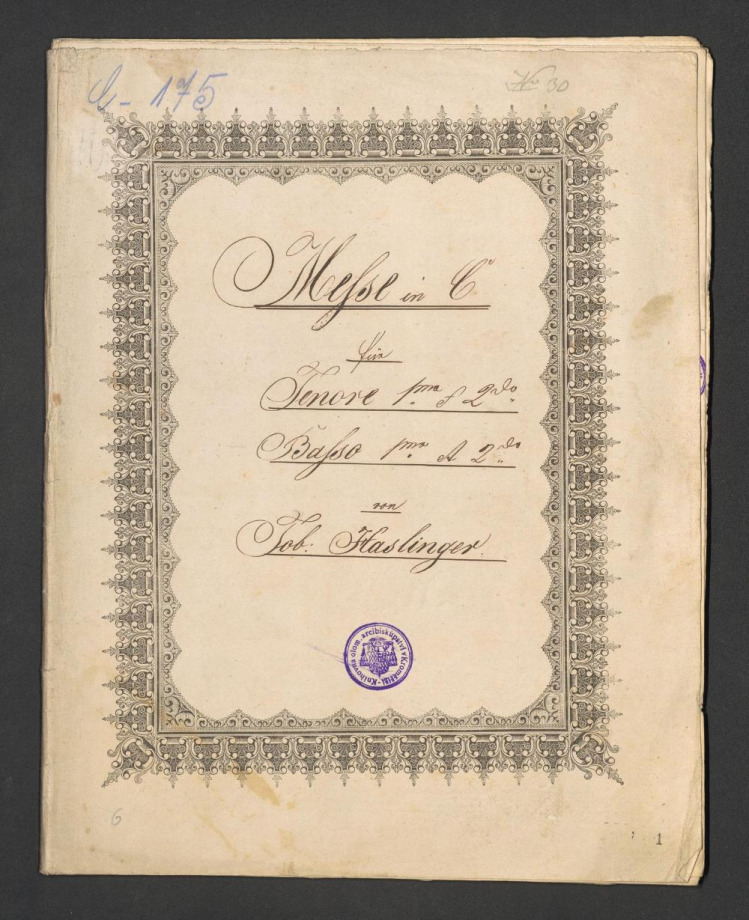 L - 175
No 30
Messe in C
für
Tenore 1mo & 2do
Basso 1mo & 2do
von
Tob: Haslinger.
Knihovna olom. arcibiskupství v Kroměříži
6
1